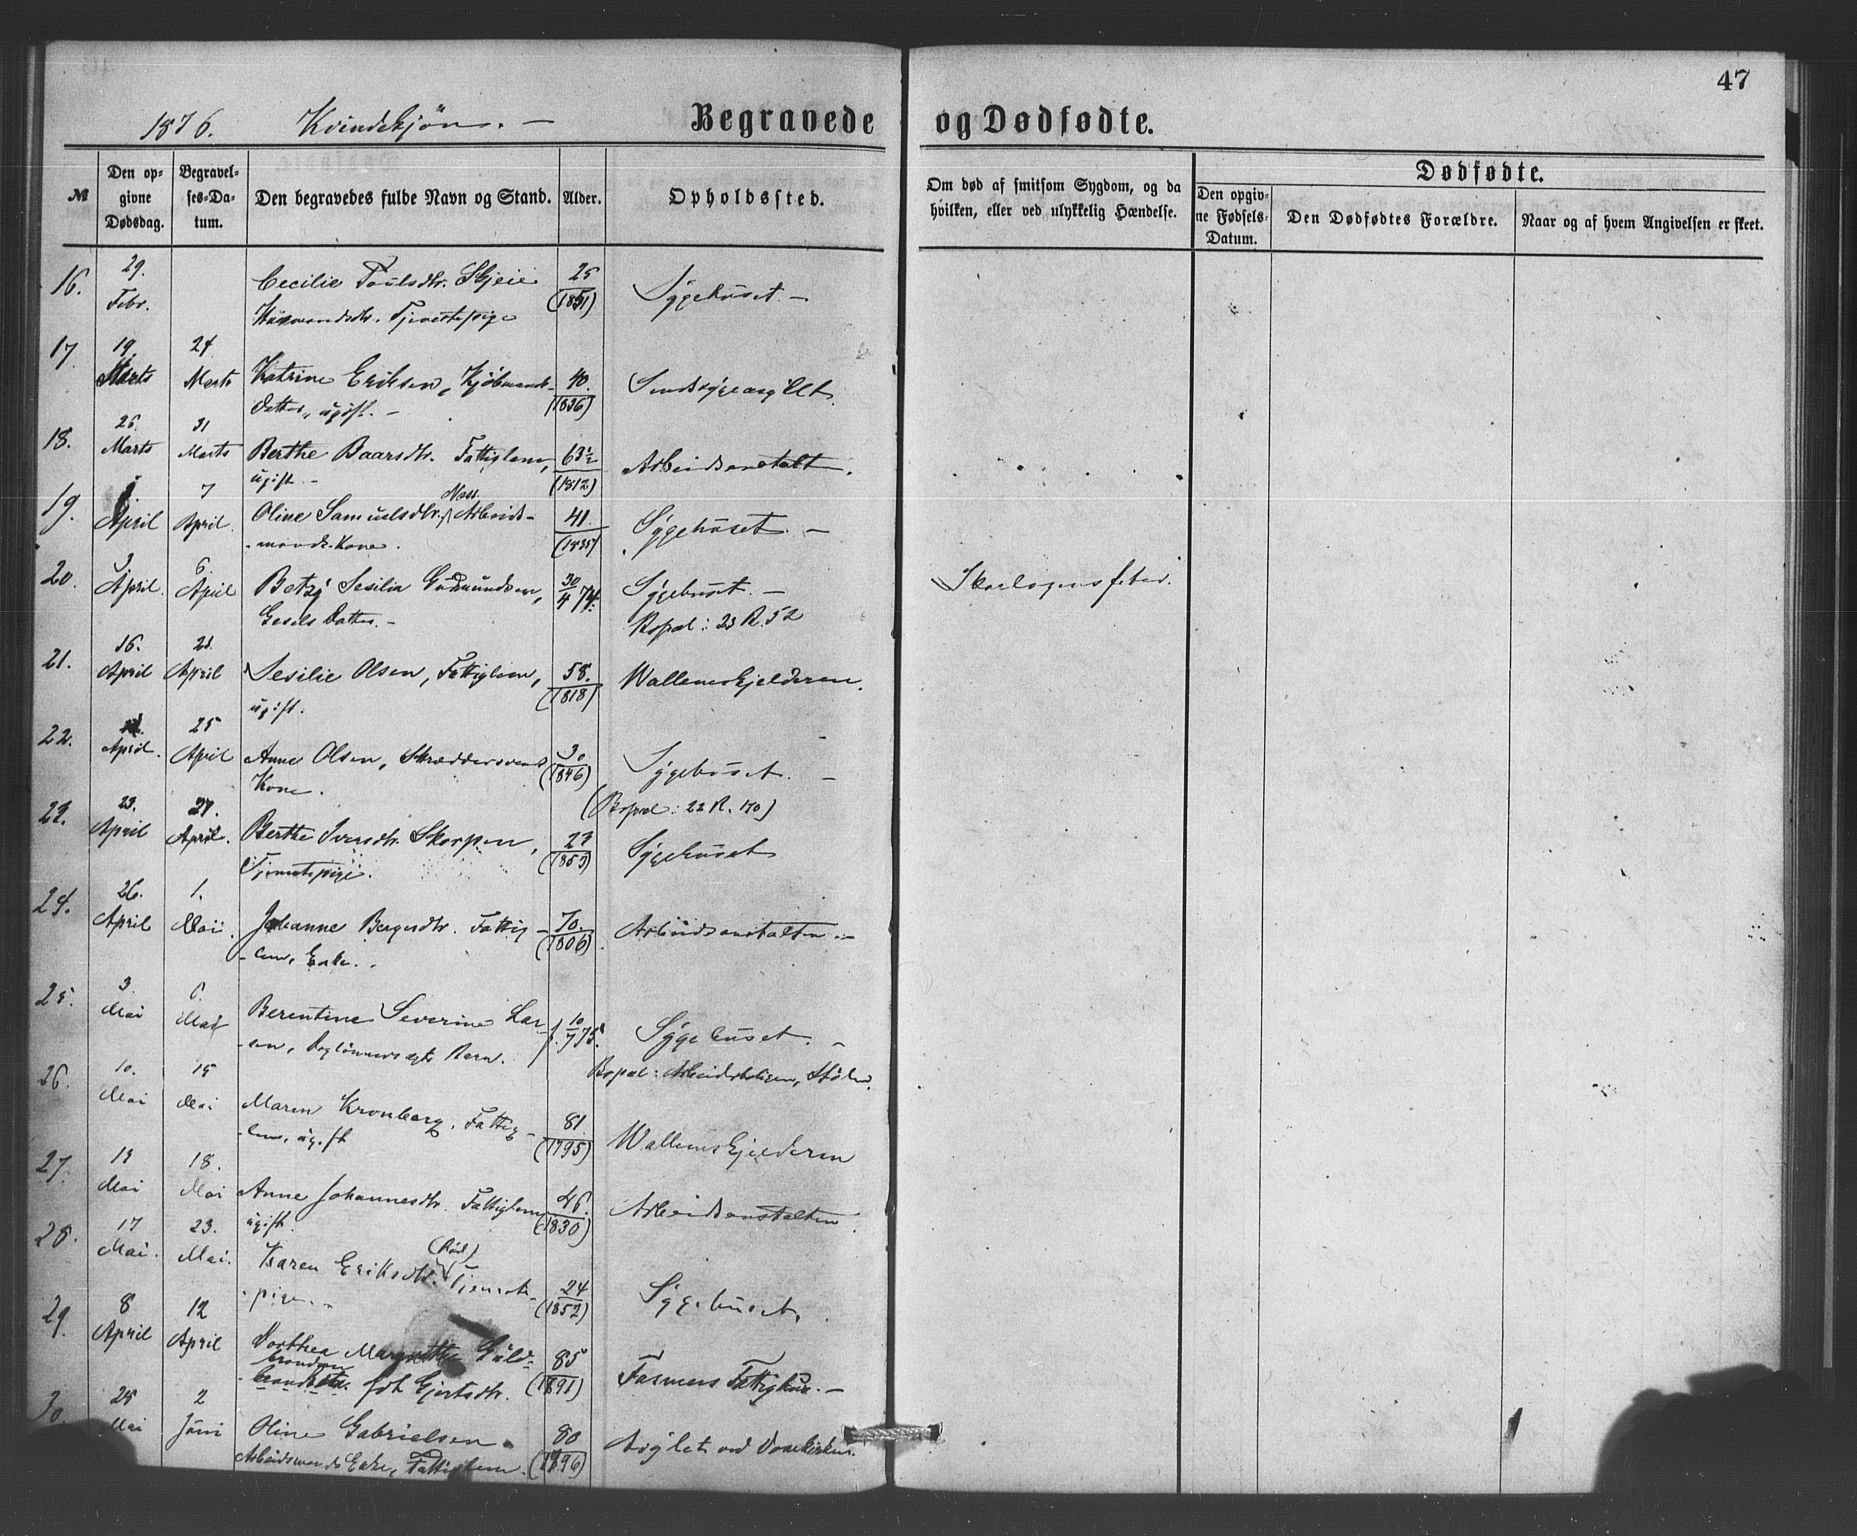 47
1876. Kvindekjøn. — Begravede og Dødfødte.
№ Den opgivne Dødsdag. Begravelses-Datum. Den begravedes fulde Navn og Stand. Alder. Opholdssted. Om død af smitsom Sygdom, og da hvilken, eller ved ulykkelig Hændelse. Dødfødte.
Den opgivne Fødsels-Datum. Den Dødfødtes Forældre. Naar og af hvem Angivelsen er skeet.
16. 29. Febr. Cecilie Poulsdtr. Skjeie 25 (1851) Sygehuset —
Husmandsdtr. Tjenestepige
17 19. Marts 24 Marts Katrine Eriksen, Kjøbmands- 40. (1836) Sindssygeasylet
Datter, ugift. —
18. 26. Marts 31 Marts Berthe Baarsdtr. Fattiglem, 63½ (1812) Arbeidsanstalt.
ugift —
19. April 7 April. Oline Samuelsdtr. Arbeids- 41. (1835) Sygehuset. —
-mands Kone.
20. 3 April. 6. April Betzy Sesilia Gudmundsen, 30/4 74. Sygehuset. — Skarlagensfeber.
Gesels Datter. — Bopæl: 23 R. 52
21. 16. April 21. April Sesilie Olsen, Fattiglem, 58. (1818) Wallemskjelderen.
ugift.
22. April. 25 April Anne Olsen, Skræddersvends 30 (1846) Sygehuset. —
Kone. (Bopæl: 22 R. 170)
23. 23. April 27. April. Berthe Iversdtr. Skorpen, 23 (1853) Sygehuset
Tjenestepige.
24. 26. April 1. Mai. Johanne Bergersdtr. Fattig- 70. (1806) Arbeidsanstalten —
-lem, Enke.
25. 3. Mai 6. Mai Berentine Severine Lar- f. 10/7 75. Sygehuset. —
sen, Daglønners ægte Barn. Bopæl: Arbeidsboligen, Stølen.
26. 10. Mai 15 Mai Maren Kronberg, Fattig- 81 (1795) Wallemskjelderen
-lem, ugift
27. 13 Mai 18. Mai Anne Johannesdtr. Fattiglem 46. (1830) Arbeidsanstalten.
ugift.
28. 17 Mai. 23. Mai. Karen Eriksdtr. Tjeneste- 24 (1852) Sygehuset.
-pige. —
29. 8 April 12 April Dorthea Margrethe Guld- 85 (1891) Fasmers Fattighus. —
brandsen
født Gjertsdtr.
30. 25 Mai 2 Juni Oline Gabrielsen. 80 (1896) Asylet ved Domkirken.
Arbeidsmands Enke, Fattiglem.